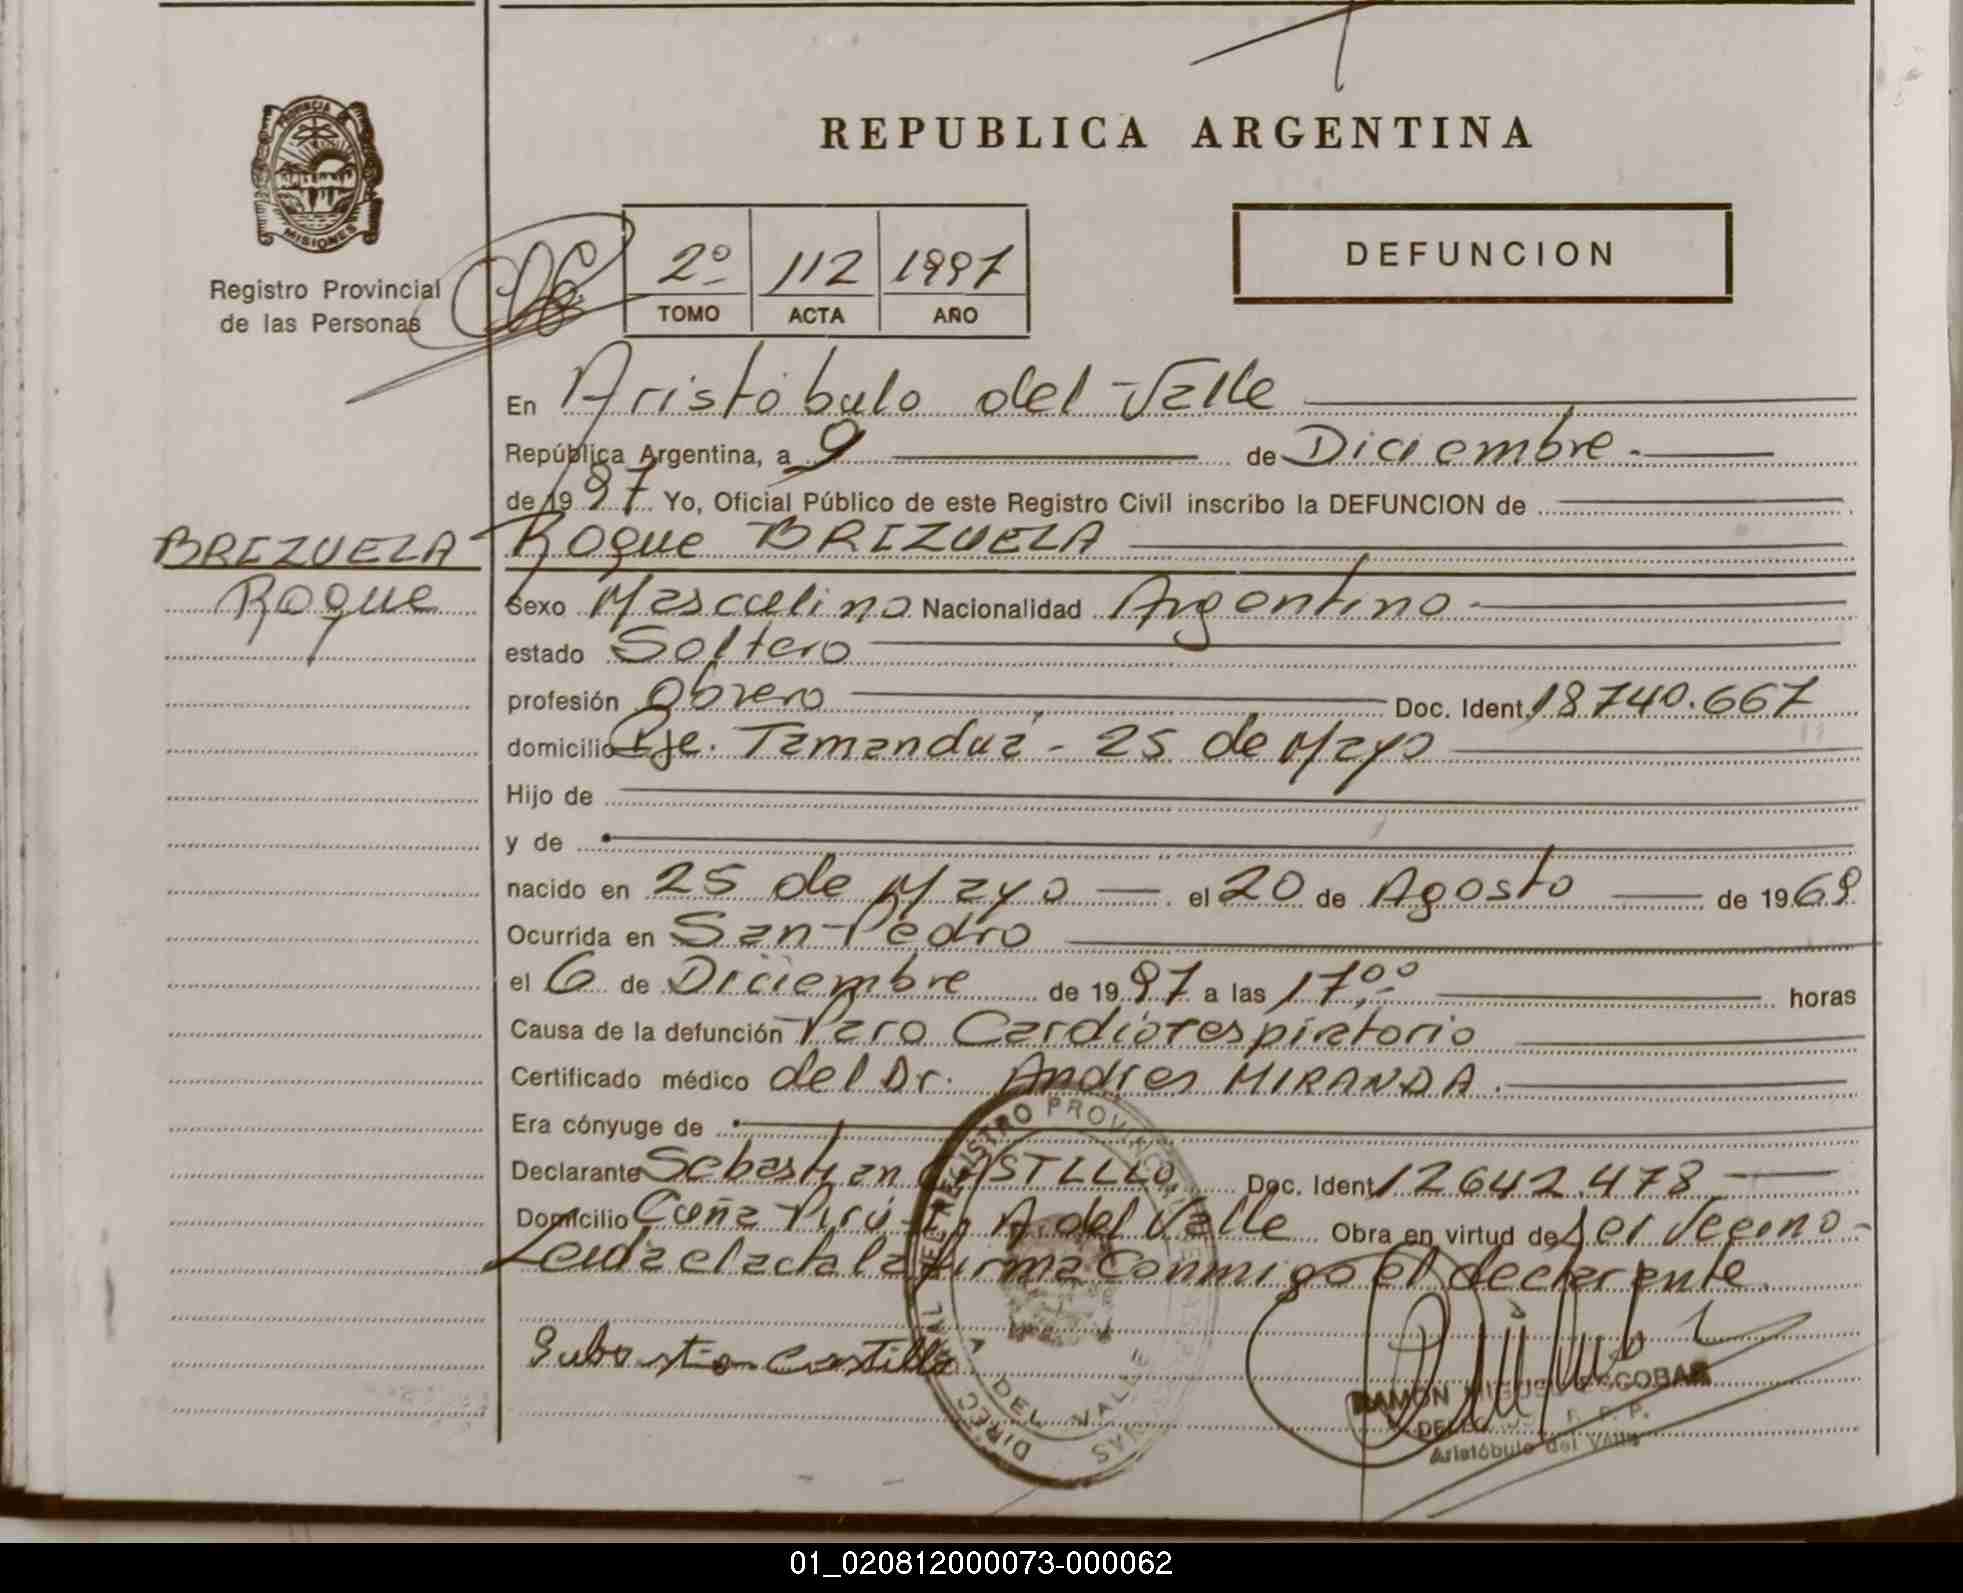 PROVINCIA
MISIONES
Registro Provincial
de las Personas
REPUBLICA ARGENTINA
2º 112 1997
TOMO ACTA AÑO
DEFUNCION
En Aristóbulo del Valle
República Argentina, a 9 de Diciembre.
de 1997 Yo, Oficial Público de este Registro Civil inscribo la DEFUNCION de
BRIZUELA
Roque
Roque BRIZUELA
Sexo Masculino Nacionalidad Argentino
estado Soltero
profesión Obrero Doc. Ident. 18740.667
domicilio Pje. Tamanduá - 25 de Mayo
Hijo de
y de
nacido en 25 de Mayo el 20 de Agosto de 1969
Ocurrida en San Pedro
el 6 de Diciembre de 1997 a las 17,ºº horas
Causa de la defunción Paro Cardiorespiratorio
Certificado médico del Dr. Andres MIRANDA.
Era cónyuge de
Declarante Sebastian CASTILLO Doc. Ident. 12642.478
Domicilio Cuña Pirú - A. del Valle Obra en virtud de Ser Vecino-
Leida el acta la firma Conmigo el declarante.
Sebastian Castillo
REGISTRO PROVINCIAL DE LAS PERSONAS
DEL VALLE
RAMON MIGUEL ESCOBAR
R. P. P.
Aristóbulo del Valle
01_020812000073-000062